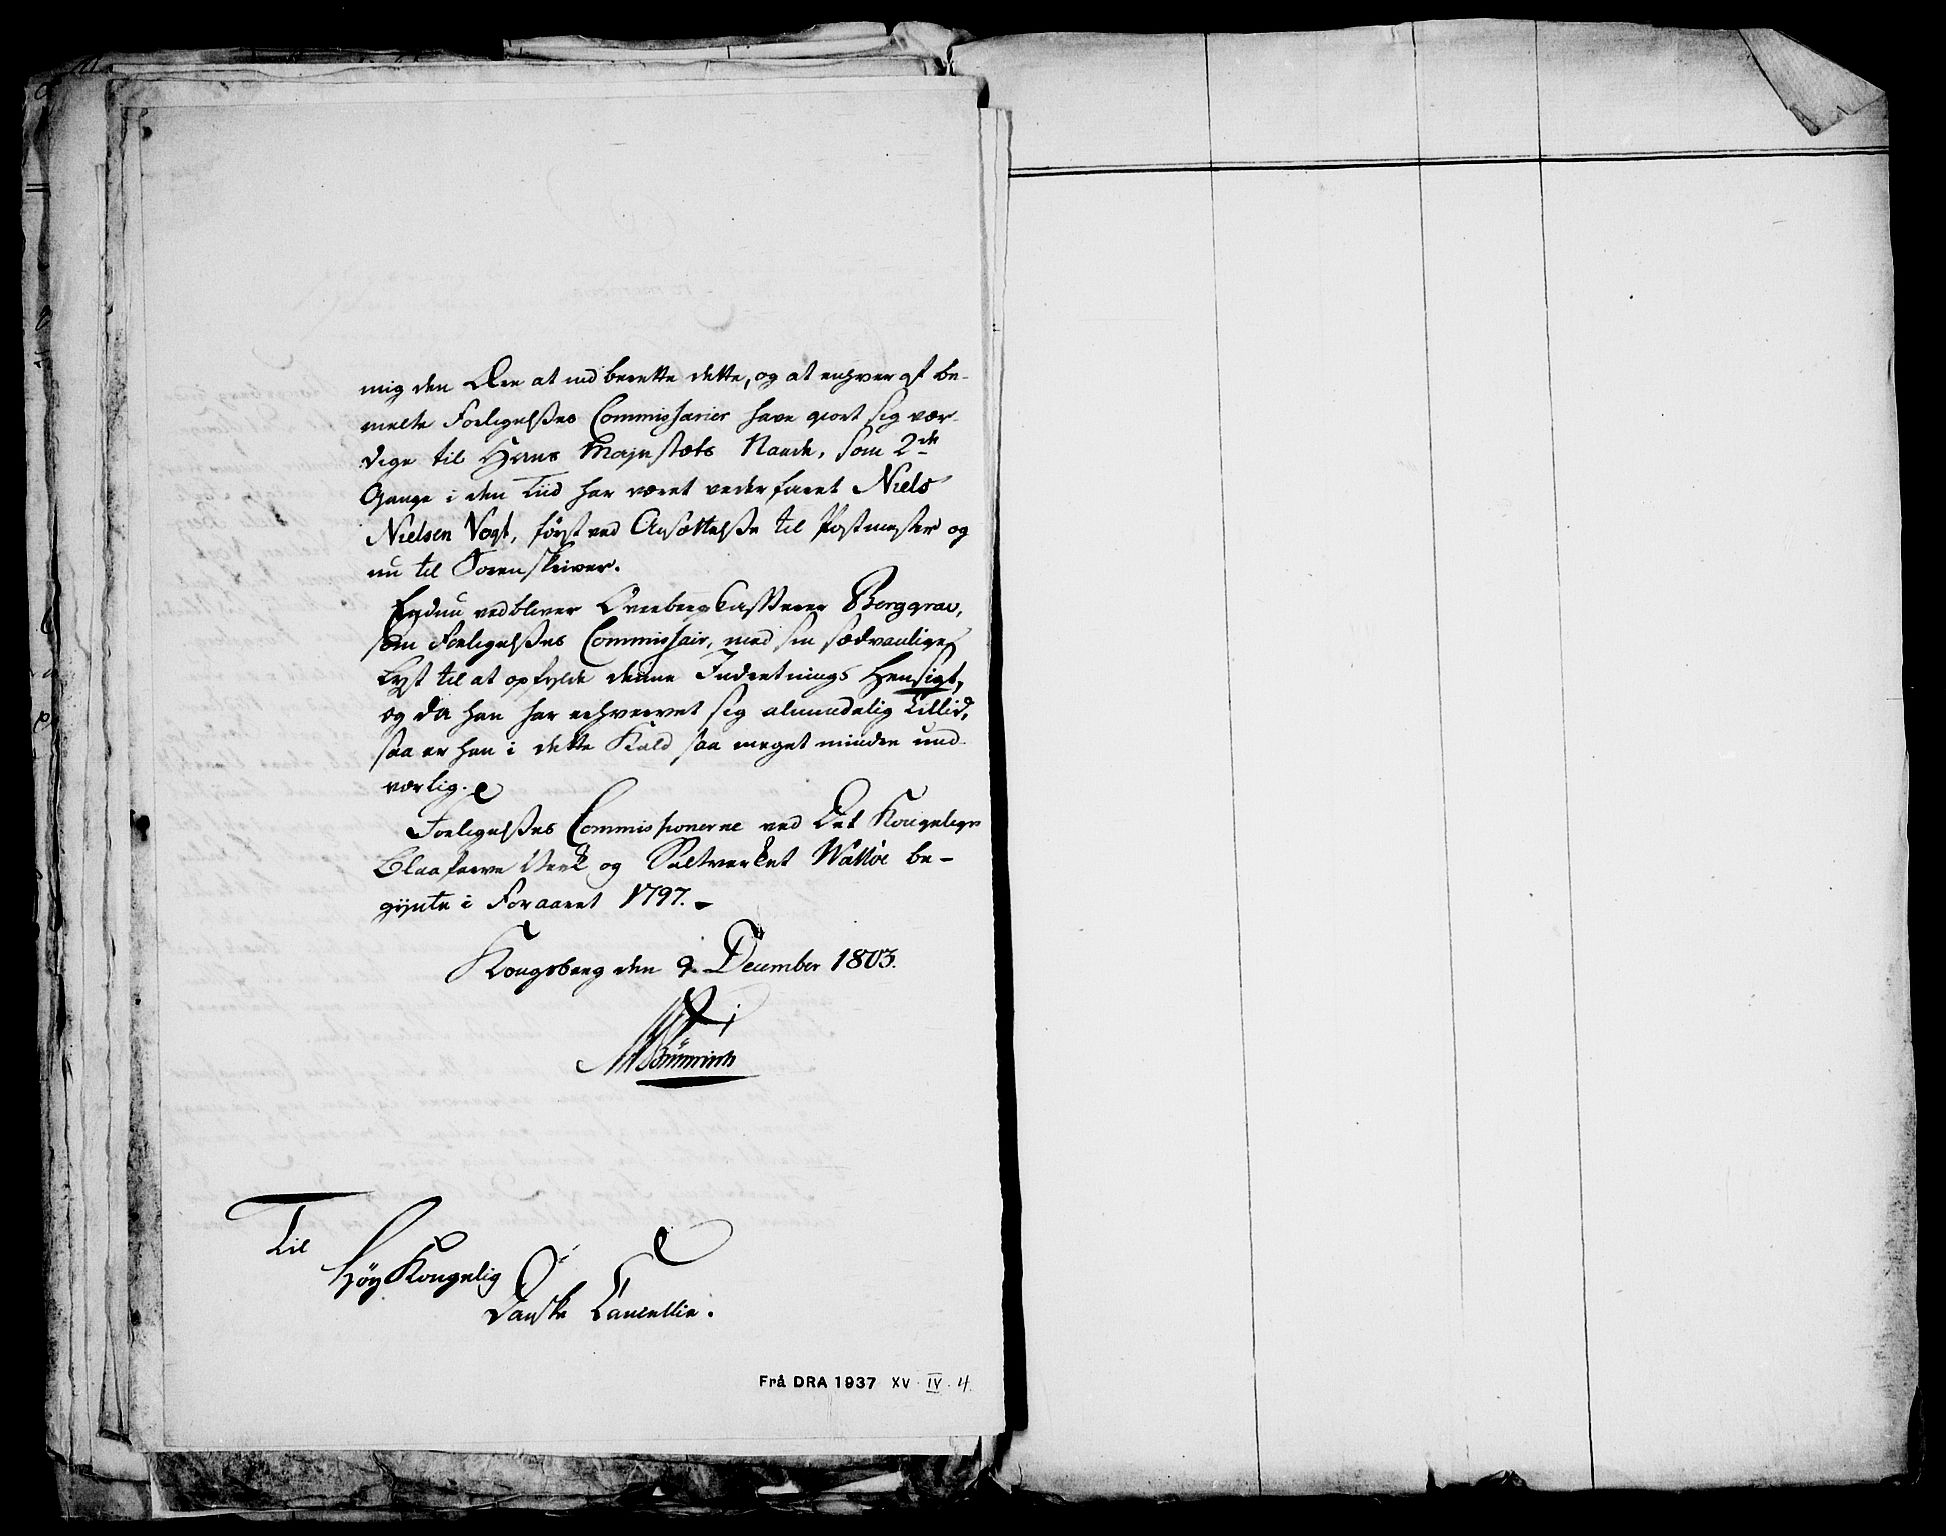 mig den Ære at indberette dette, og at enhver af be-
melte Forligelses Commissarier have giort sig vær-
dige til Hans Majestæts Naade, som 2de
Gange i den Tiid har været vederfaret Niels
Nielsen Vogt, først ved Ansættelse til Postmester og
nu til Sorenskriver.
Endnu vedbliver Overbergkasserer Berggrav,
som Forligelses Commissair, med sin sædvanlige
Lyst til at opfylde denne Indretnings Hensigt,
og da han har erhvervet sig almindelig Tillid,
saa er han i dette Kald saa meget mindre und-
værlig.
Forligelses Commissionerne ved Det Kongelige
Blaafarve Værk og Saltværket Walløe be-
gynte i Foraaret 1797.
Kongsberg den 9. December 1803.
Til
Høy Kongelig
Danske Cancellie.
Frå DRA 1937 XV. IV. 4.